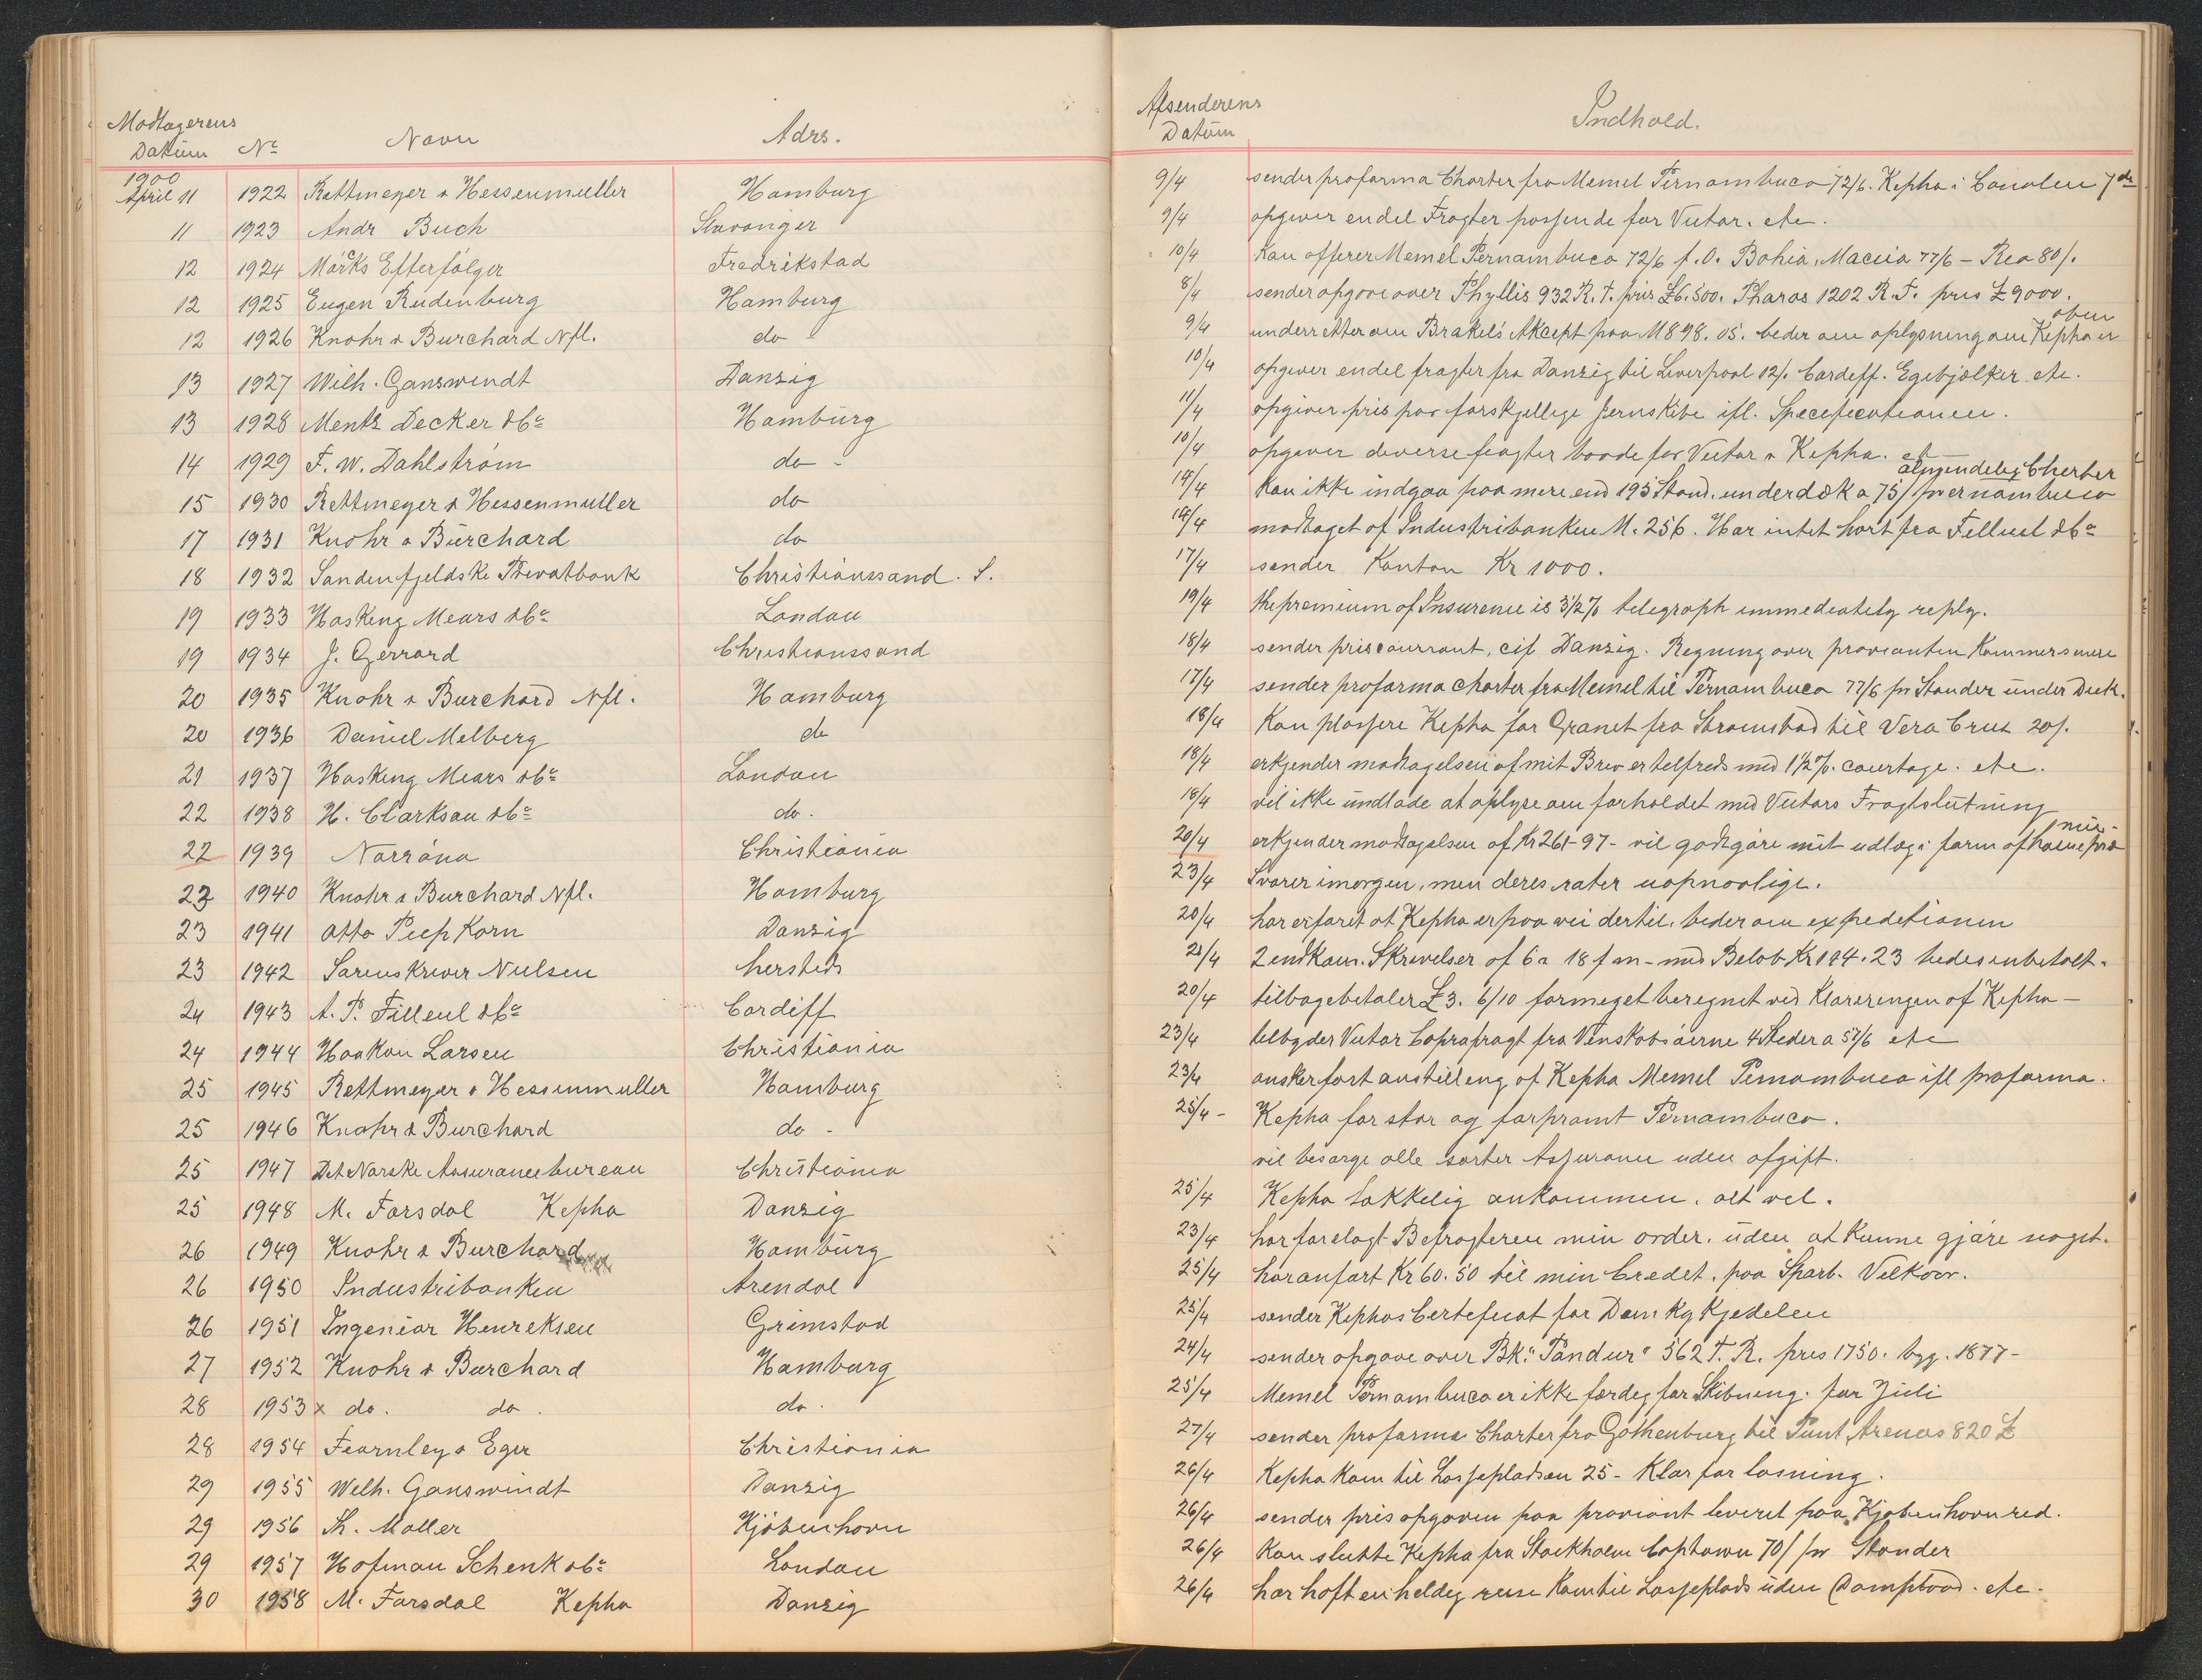 Modtagerens
Datum No Navn Adrs.
1900
April 11 1922 Rettmeyer & Hessenmuller Hamburg
11 1923 Andr Buch Stavanger
12 1924 Mörcks Efterfølger Fredrikstad
12 1925 Eugen Rudenburg Hamburg
12 1926 Knohr & Burchard Nfl. do
13 1927 Wilh. Ganswindt Danzig
13 1928 Mentz Decker & Co Hamburg
14 1929 F. W. Dahlström do -
15 1930 Rettmeyer & Hessenmuller do
17 1931 Knohr & Burchard do
18 1932 Søndenfjeldske Privatbank Christianssand. S.
19 1933 Hosking Mears & Co London
19 1934 J. Gerrard Christianssand
20 1935 Knohr & Burchard Nfl. Hamburg
20 1936 Daniel Melberg do
21 1937 Hosking Mears & Co London
22 1938 H. Clarkson & Co do.
22 1939 Norröna Christiania
23 1940 Knohr & Burchard Nfl. Hamburg
23 1941 Otto Piepkorn Danzig
23 1942 Sorenskriver Nielsen hersteds
24 1943 A. P. Filleul & Co Cardiff
24 1944 Haakon Larsen Christiania
25 1945 Rettmeyer & Hessenmuller Hamburg
25 1946 Knohr & Burchard do -
25 1947 Det Norske Assurancebureau Christiania
25 1948 M. Forsdal Kepha Danzig
26 1949 Knohr & Burchard Hamburg
26 1950 Industribanken Arendal
26 1951 Ingeniør Henriksen Grimstad
27 1952 Knohr & Burchard Hamburg
28 1953 x do. do. do.
28 1954 Fearnley & Eger Christiania
29 1955 Wilh. Ganswindt Danzig
29 1956 Th. Møller Kjöbenhavn
29 1957 Hofman Schenk & Co London
30 1958 M. Forsdal Kepha Danzig
Afsenderens
Datum Indhold.
9/4 sender proforma Charter fra Memel Pernambuco 72/6. Kepha i Canalen 7de
9/4 opgiver endel Fragter passende for Victor. etc.
10/4 Kan offerer Memel Pernambuco 72/6 f.O. Bahia, Maceio 77/6 - Rio 80/.
8/4 sender opgave over Phyllis 932 R.T. pris £6.500. Pharos 1202 R.T. pris £9000.
9/4 underretter om Brakels Akcept paa M 898.05. beder om oplysning om Kepha er
oben
10/4 opgiver endel fragter fra Danzig til Liverpool 12/. Cardiff. Egebjælker. etc.
11/4 opgiver pris paa forskjellige Jernskibe ifl. Specificationen.
10/4 opgiver diverse fragter baade for Victor & Kepha. et
14/4 Kan ikke indgaa paa mere end 195 Stand. underdæk a 75/ pernambuco
almindelig Cherter
14/4 modtaget af Industribanken M. 256. Har intet hørt fra Filleul & Co
17/4 sender Konton Kr 1000.
19/4 the premium of Insurence is 3 1/2 % telegraph immediately reply.
18/4 sender priscourrant, cif Danzig. Regning over provianten Kommer senere
17/4 sender proforma charter fra Memel til Pernambuco 77/6 pr Stander under Dæk.
18/4 Kan plassere Kepha for Granet fra Strømstad til Vera Cruz 20/.
18/4 erkjender modtagelsen af mit Brev er tilfreds med 1 1/2 %. courtage. etc.
18/4 vil ikke undlade at oplyse om forholdet med Victors Fragtslutning
20/4 erkjender modtagelsen af Kr 261-97- vil godtgøre mit udlæg i form af havne
23/4 Svarer imorgen, men deres rater uopnaalige.
20/4 har erfaret at Kepha er paa vei dertil. beder om expeditionen
21/4 2 endkom. Skrivelser af 6 a 18 f m - med Beløb Kr 194.23 bedes indbetalt.
20/4 tilbagebetaler £3. 6/10 formeget beregnet ved Klareringen af Kepha -
23/4 tilbyder Victor Coprafragt fra Venskabsøerne 4 Steder a 57/6 etc
23/4 ønsker fast anstilling af Kepha Memel Pernambuco ifl proforma.
25/4 - Kepha for stor og for promt Pernambuco.
vil besørge alle sorter Assurance uden afgift.
25/4 Kepha lykkelig ankommen. alt vel.
23/4 har forelagt Befragteren min order. uden at kunne gjøre noget.
25/4 har anført Kr 60.50 til min Credit. paa Sparb. Vilkaar.
25/4 sender Kephas Certificat for Donkykjedelen
24/4 sender opgave over Bk. "Pandur" 562 T. R. pris 1750. byg. 1877-
25/4 Memel Pernambuco er ikke færdig for Skibning. før Juli
27/4 sender proforma Charter fra Gothenburg til Punt Arenas 820 £
26/4 Kepha kom til Lossepladsen 25 - Klar for losning.
26/4 sender prisopgaven paa proviant leveret paa Kjøbenhavn red.
26/4 Kan slutte Kepha fra Stockholm Captown 70/ pr Stander
26/4 har haft en heldig reise Kom til Losseplads uden Dampbaad. etc.